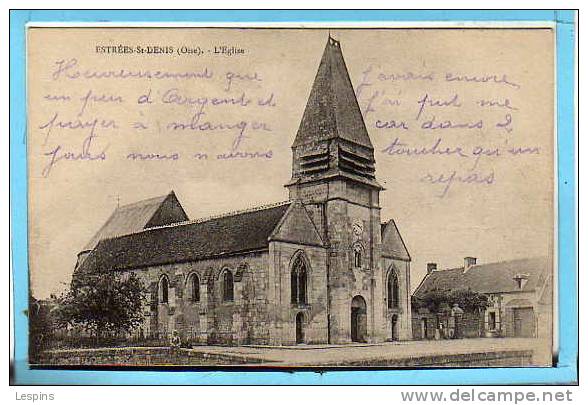 ESTRÉES-St-DENIS (Oise). - L'Église
Heureusement que
un peu d'argent et
payer à manger
jours nous n'avons
j'avais encore
j'ai put me
car dans 2
touchez qu'un
repas
Lespins
www.delcampe.net